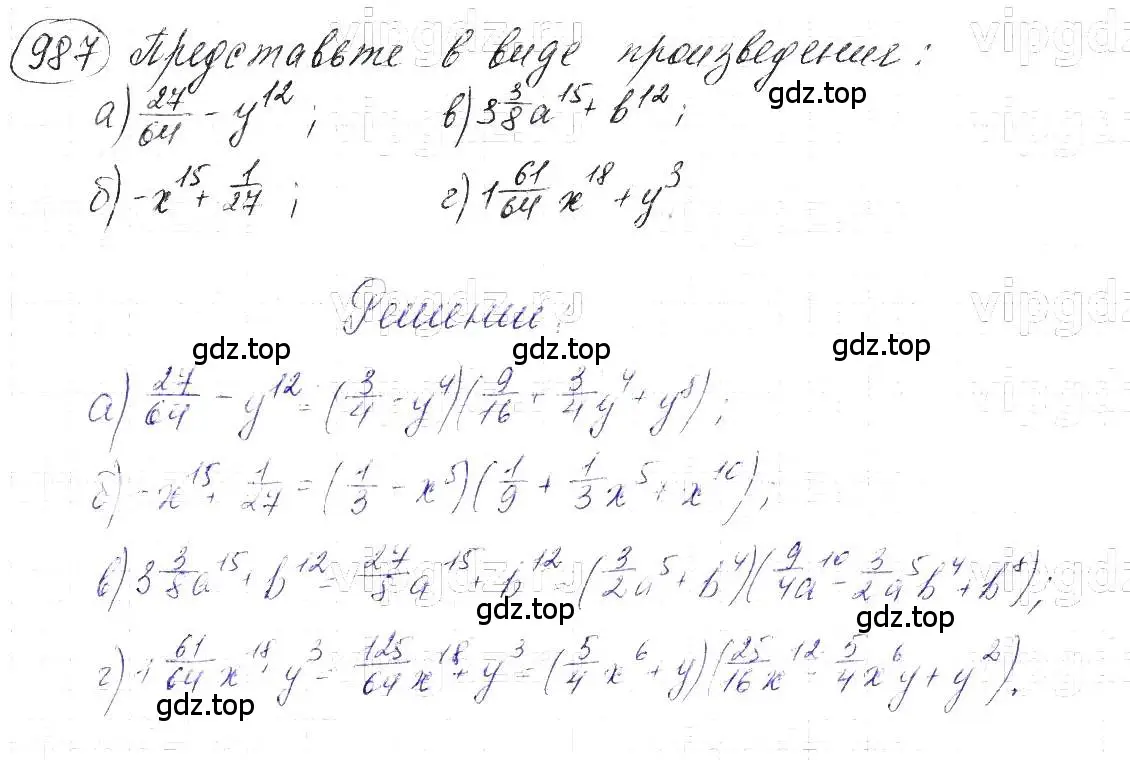 987 Представьте в виде произведения:
а) 27/64 - y^12; в) 3 3/8 a^15 + b^12;
б) -x^15 + 1/27; г) 1 61/64 x^18 + y^3
Решение:
а) 27/64 - y^12 = (3/4 - y^4)(9/16 + 3/4 y^4 + y^8);
б) -x^15 + 1/27 = (1/3 - x^5)(1/9 + 1/3 x^5 + x^10);
в) 3 3/8 a^15 + b^12 = 27/8 a^15 + b^12 = (3/2 a^5 + b^4)(9/4 a^10 - 3/2 a^5 b^4 + b^8);
г) 1 61/64 x^18 + y^3 = 125/64 x^18 + y^3 = (5/4 x^6 + y)(25/16 x^12 - 5/4 x^6 y + y^2).
vipgdz.ru
vipgdz
gdz.top
gdz.top
vipgdz.ru
vipgdz
gdz.top
gdz.top
gdz.top
vipgdz.ru
vipgdz
gdz.top
gdz.top
gdz.top